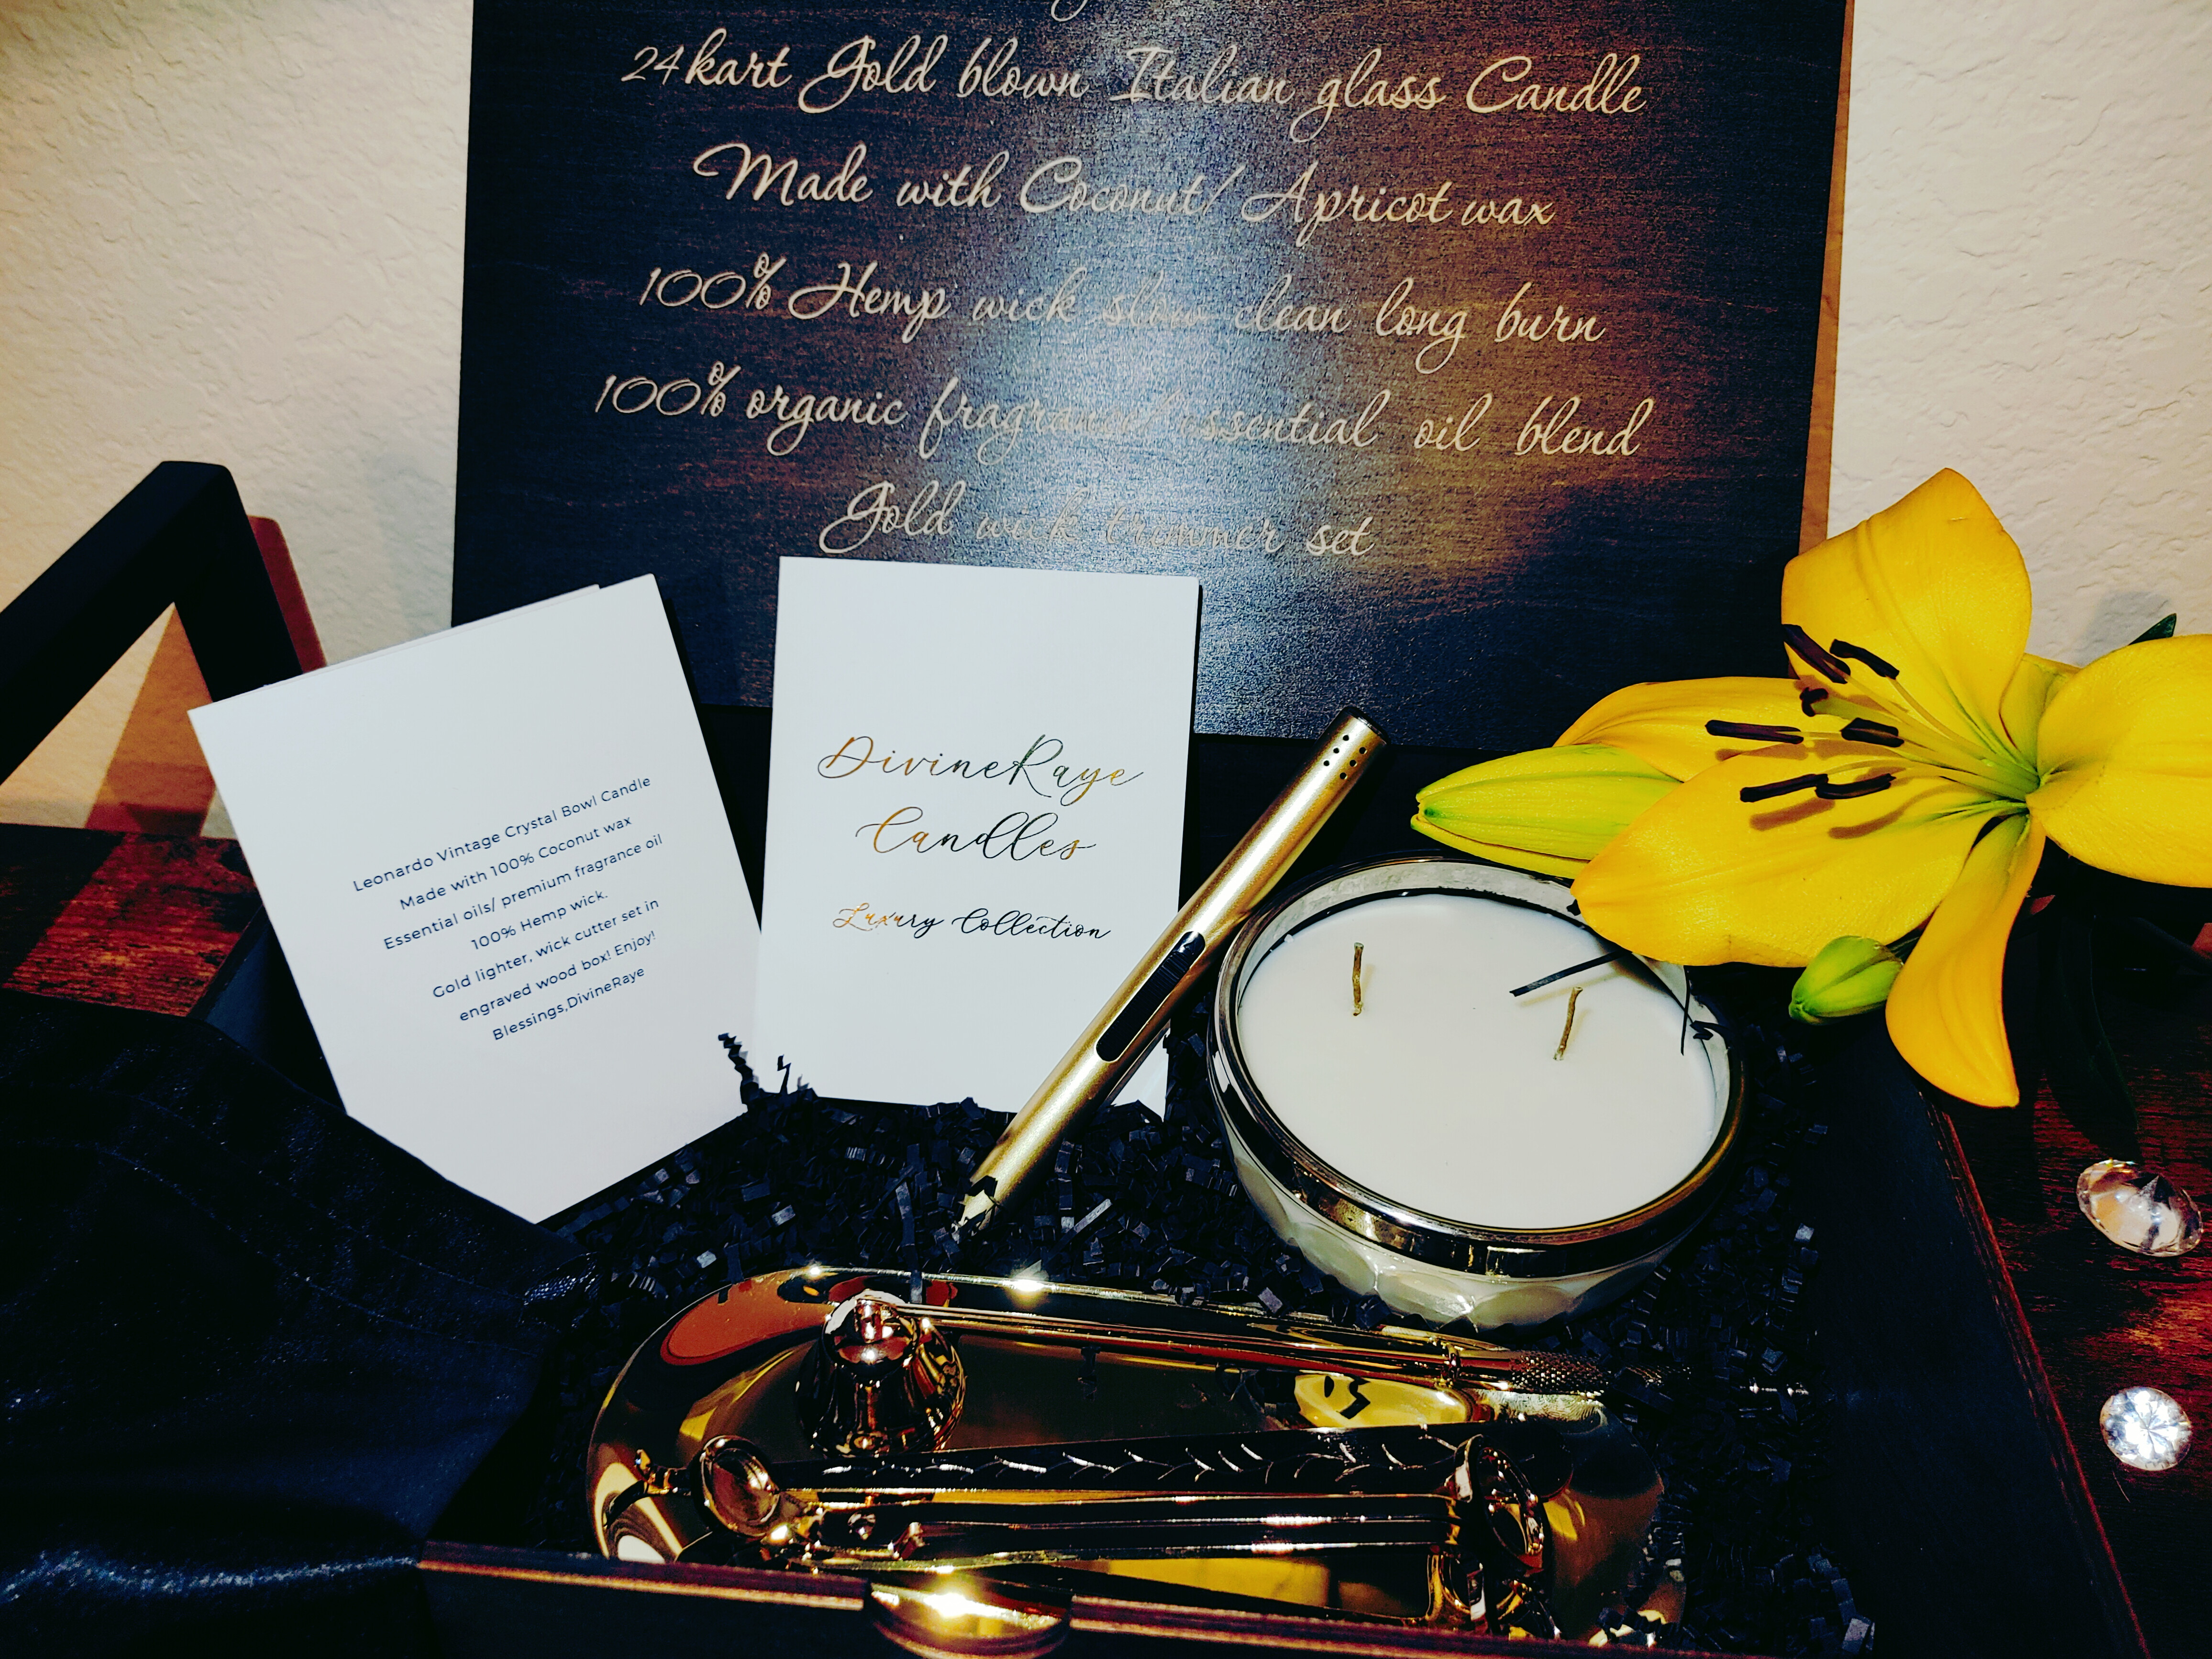 24kart Gold blown Italian glass Candle
Made with Coconut/ Apricot wax
100% Hemp wick slow clean long burn
100% organic fragrance/ essential oil blend
Gold wick trimmer set
Leonardo Vintage Crystal Bowl Candle
Made with 100% Coconut wax
Essential oils/ premium fragrance oil
100% Hemp wick.
Gold lighter, wick cutter set in
engraved wood box! Enjoy!
Blessings,DivineRaye
DivineRaye
Candles
Luxury Collection